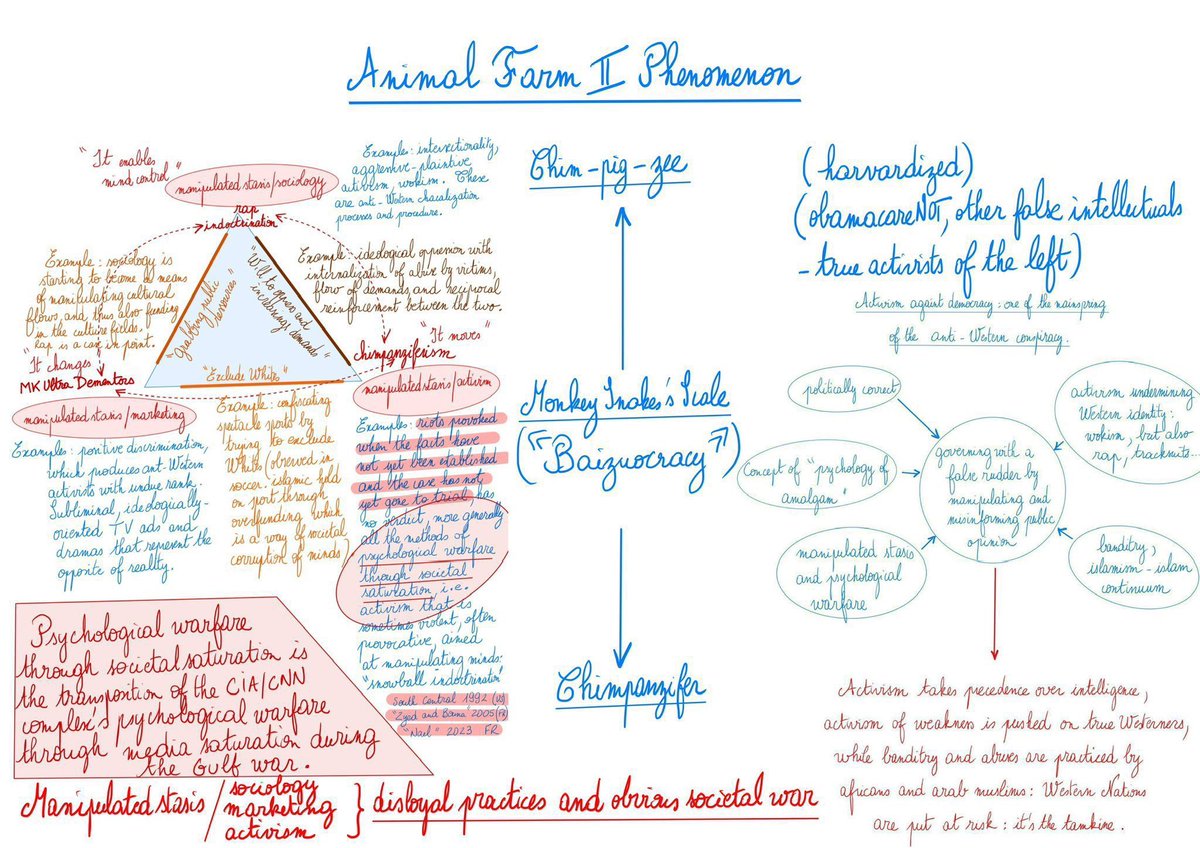 Animal Farm II Phenomenon
"It enables
mind control"
manipulated stasis/sociology
rap
indoctrination
Example: intersectionality,
aggressive-plaintive
activism, wokism. These
are anti-Western
processes and procedure.
Example: sociology is
starting to become a means
of manipulating cultural
flows, and thus also funding
in the culture fields.
Rap is a case in point.
"Grabbing public
resources"
"Will to oppress and
increasing demands"
"Exclude Whites"
Example: ideological oppression with
internalization of abuse by victims,
flow of demands, and reciprocal
reinforcement between the two.
"It changes"
MK Ultra Dementors
manipulated stasis/marketing
Examples: positive discrimination,
which produces anti-Western
activists with undue rank.
Subliminal, ideologically-
oriented TV ads and
dramas that represent the
opposite of reality.
Example: confiscating
spectacle sports by
trying to exclude
Whites (observed in
soccer: islamic hold
on sport through
overfunding which
is a way of societal
corruption of minds)
"It moves"
chimpanziferism
manipulated stasis/activism
Examples: riots provoked
when the facts have
not yet been established
and the case has not
yet gone to trial, has
no verdict, more generally
all the methods of
psychological warfare
through societal
saturation, i.e.
activism that is
sometimes violent, often
provocative, aimed
at manipulating minds:
"snowball indoctrination"
South Central 1992 (US)
"Zyed and Bouna" 2005 (FR)
"Nael" 2023 FR
Psychological warfare
through societal saturation is
the transposition of the CIA/CNN
complex's psychological warfare
through media saturation during
the Gulf war.
Manipulated stasis / sociology
marketing
activism } disloyal practices and obvious societal war
Chim-pig-zee
Monkey Snakes's Scale
(«"Baizuocracy"»)
Chimpanzifer
(harvardized)
(obamacareNOT, other false intellectuals
- true activists of the left)
Activism against democracy: one of the mainspring
of the anti-Western conspiracy.
politically correct
Concept of "psychology of
amalgam"
manipulated stasis
and psychological
warfare
governing with a
false rudder by
manipulating and
misinforming public
opinion
activism undermining
Western identity:
wokism, but also
rap, tracknuts...
banditry,
islamism-islam
continuum
Activism takes precedence over intelligence,
activism of weakness is pushed on true Westerners,
while banditry and abuses are practiced by
africans and arab muslims: Western Nations
are put at risk: it's the tamkine.